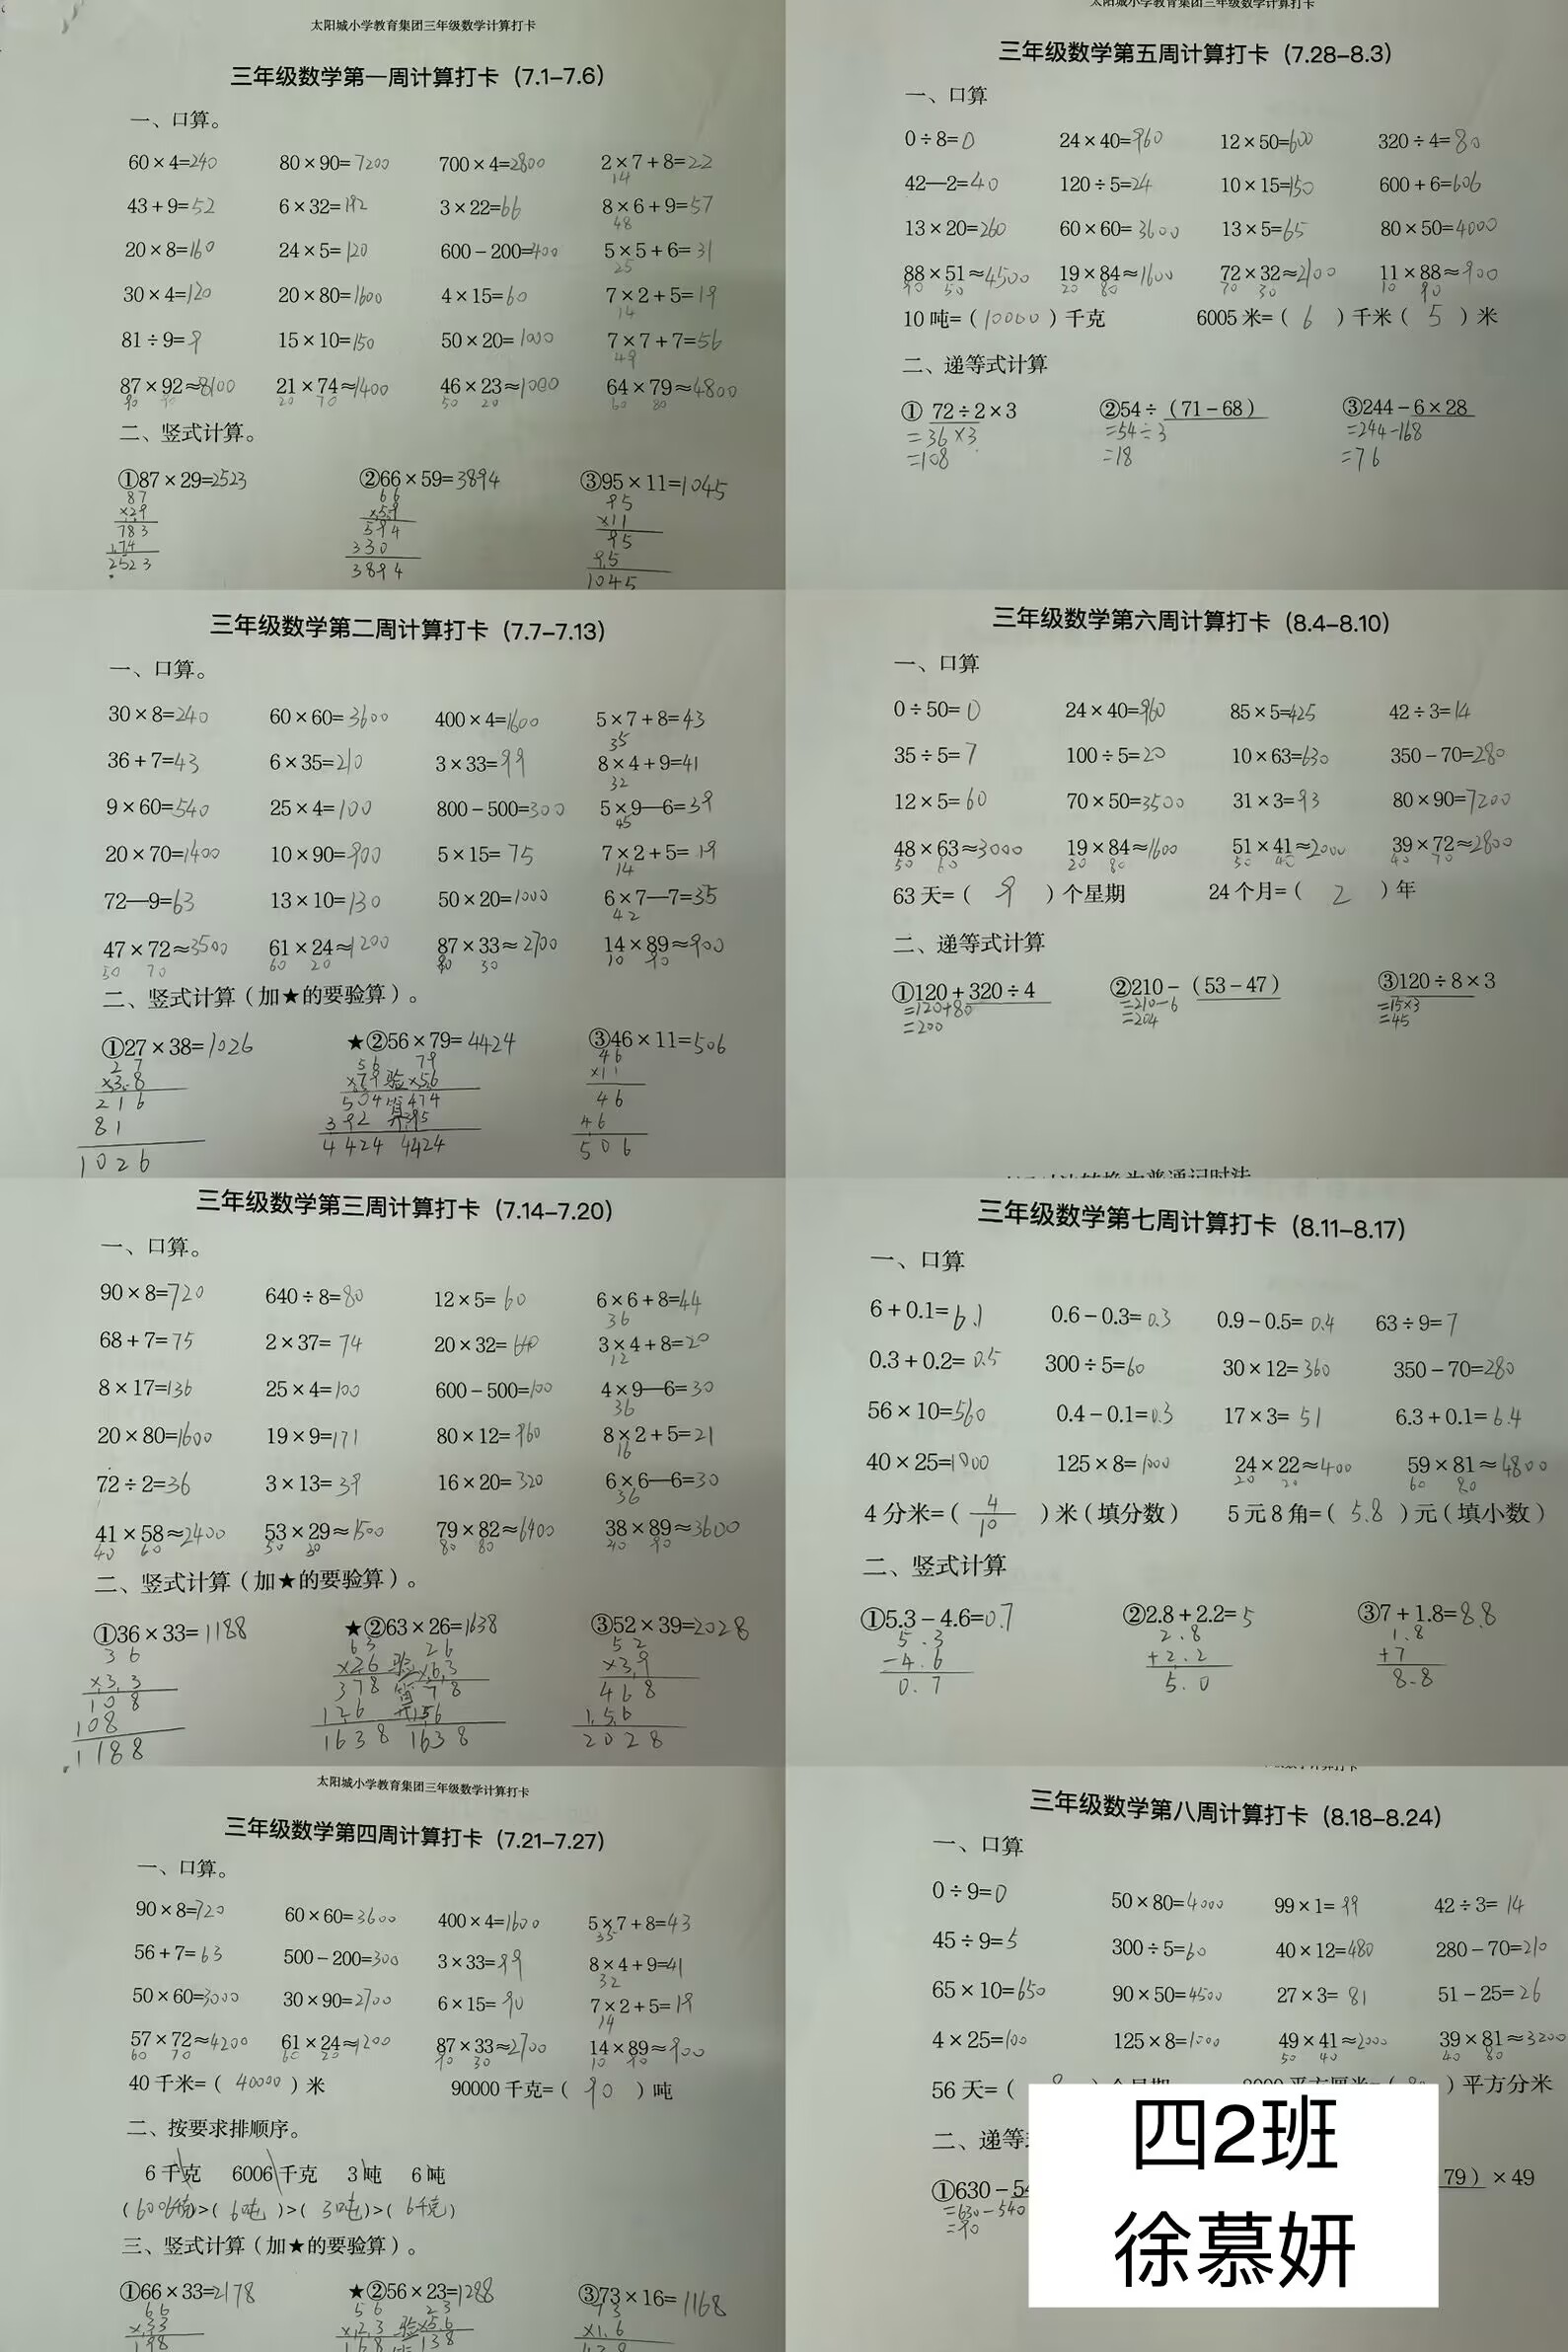 太阳城小学教育集团三年级数学计算打卡
三年级数学第一周计算打卡（7.1–7.6）
一、口算。
60×4=240 80×90=7200 700×4=2800 2×7+8=22
14
43+9=52 6×32=192 3×22=66 8×6+9=57
48
20×8=160 24×5=120 600−200=400 5×5+6=31
25
30×4=120 20×80=1600 4×15=60 7×2+5=19
14
81÷9=9 15×10=150 50×20=1000 7×7+7=56
49
87×92≈8100 21×74≈1400 46×23≈1000 64×79≈4800
90 90 20 70 50 20 60 80
二、竖式计算。
①87×29=2523 ②66×59=3894 ③95×11=1045
87 66 95
×29 ×59 ×11
783 594 95
174 330 95
2523 3894 1045
三年级数学第二周计算打卡（7.7–7.13）
一、口算。
30×8=240 60×60=3600 400×4=1600 5×7+8=43
35
36+7=43 6×35=210 3×33=99 8×4+9=41
32
9×60=540 25×4=100 800−500=300 5×9—6=39
45
20×70=1400 10×90=900 5×15=75 7×2+5=19
14
72—9=63 13×10=130 50×20=1000 6×7—7=35
42
47×72≈3500 61×24≈1200 87×33≈2700 14×89≈900
50 70 60 20 90 30 10 90
二、竖式计算（加★的要验算）。
①27×38=1026 ★②56×79=4424 ③46×11=506
27 56 79 46
×38 ×79 验 ×56 ×11
216 504 算 474 46
81 392 395 46
1026 4424 4424 506
三年级数学第三周计算打卡（7.14–7.20）
一、口算。
90×8=720 640÷8=80 12×5=60 6×6+8=44
36
68+7=75 2×37=74 20×32=640 3×4+8=20
12
8×17=136 25×4=100 600−500=100 4×9—6=30
36
20×80=1600 19×9=171 80×12=960 8×2+5=21
16
72÷2=36 3×13=39 16×20=320 6×6—6=30
36
41×58≈2400 53×29≈1500 79×82≈6400 38×89≈3600
40 60 50 30 80 80 40 90
二、竖式计算（加★的要验算）。
①36×33=1188 ★②63×26=1638 ③52×39=2028
36 63 26 52
×33 ×26 验 ×63 ×39
108 378 算 78 468
108 126 156 156
1188 1638 1638 2028
太阳城小学教育集团三年级数学计算打卡
三年级数学第四周计算打卡（7.21–7.27）
一、口算。
90×8=720 60×60=3600 400×4=1600 5×7+8=43
35
56+7=63 500−200=300 3×33=99 8×4+9=41
32
50×60=3000 30×90=2700 6×15=90 7×2+5=19
14
57×72≈4200 61×24≈1200 87×33≈2700 14×89≈900
60 70 60 20 90 30 10 90
40千米=（40000）米 90000千克=（90）吨
二、按要求排顺序。
6千克 6006千克 3吨 6吨
（6006千克）>（6吨）>（3吨）>（6千克）
三、竖式计算（加★的要验算）。
①66×33=2178 ★②56×23=1288 ③73×16=1168
66 56 23 73
×33 ×23 验 ×56 ×16
198 168 138
太阳城小学教育集团三年级数学计算打卡
三年级数学第五周计算打卡（7.28–8.3）
一、口算
0÷8=0 24×40=960 12×50=600 320÷4=80
42—2=40 120÷5=24 10×15=150 600+6=606
13×20=260 60×60=3600 13×5=65 80×50=4000
88×51≈4500 19×84≈1600 72×32≈2100 11×88≈900
90 50 20 80 70 30 10 90
10吨=（10000）千克 6005米=（6）千米（5）米
二、递等式计算
①72÷2×3 ②54÷（71−68） ③244−6×28
=36×3 =54÷3 =244-168
=108 =18 =76
三年级数学第六周计算打卡（8.4–8.10）
一、口算
0÷50=0 24×40=960 85×5=425 42÷3=14
35÷5=7 100÷5=20 10×63=630 350−70=280
12×5=60 70×50=3500 31×3=93 80×90=7200
48×63≈3000 19×84≈1600 51×41≈2000 39×72≈2800
50 60 20 80 50 40 40 70
63天=（9）个星期 24个月=（2）年
二、递等式计算
①120+320÷4 ②210−（53−47） ③120÷8×3
=120+80 =210-6 =15×3
=200 =204 =45
三年级数学第七周计算打卡（8.11–8.17）
一、口算
6+0.1=6.1 0.6−0.3=0.3 0.9−0.5=0.4 63÷9=7
0.3+0.2=0.5 300÷5=60 30×12=360 350−70=280
56×10=560 0.4−0.1=0.3 17×3=51 6.3+0.1=6.4
40×25=1000 125×8=1000 24×22≈400 59×81≈4800
20 20 60 80
4分米=（4/10）米（填分数） 5元8角=（5.8）元（填小数）
二、竖式计算
①5.3−4.6=0.7 ②2.8+2.2=5 ③7+1.8=8.8
5.3 2.8 1.8
-4.6 +2.2 +7
0.7 5.0 8.8
三年级数学第八周计算打卡（8.18–8.24）
一、口算
0÷9=0 50×80=4000 99×1=99 42÷3=14
45÷9=5 300÷5=60 40×12=480 280−70=210
65×10=650 90×50=4500 27×3=81 51−25=26
4×25=100 125×8=1000 49×41≈2000 39×81≈3200
50 40 40 80
56天=（ ）平方分米
二、递等
①630−54 79）×49
=630-540
=90
四2班
徐慕妍